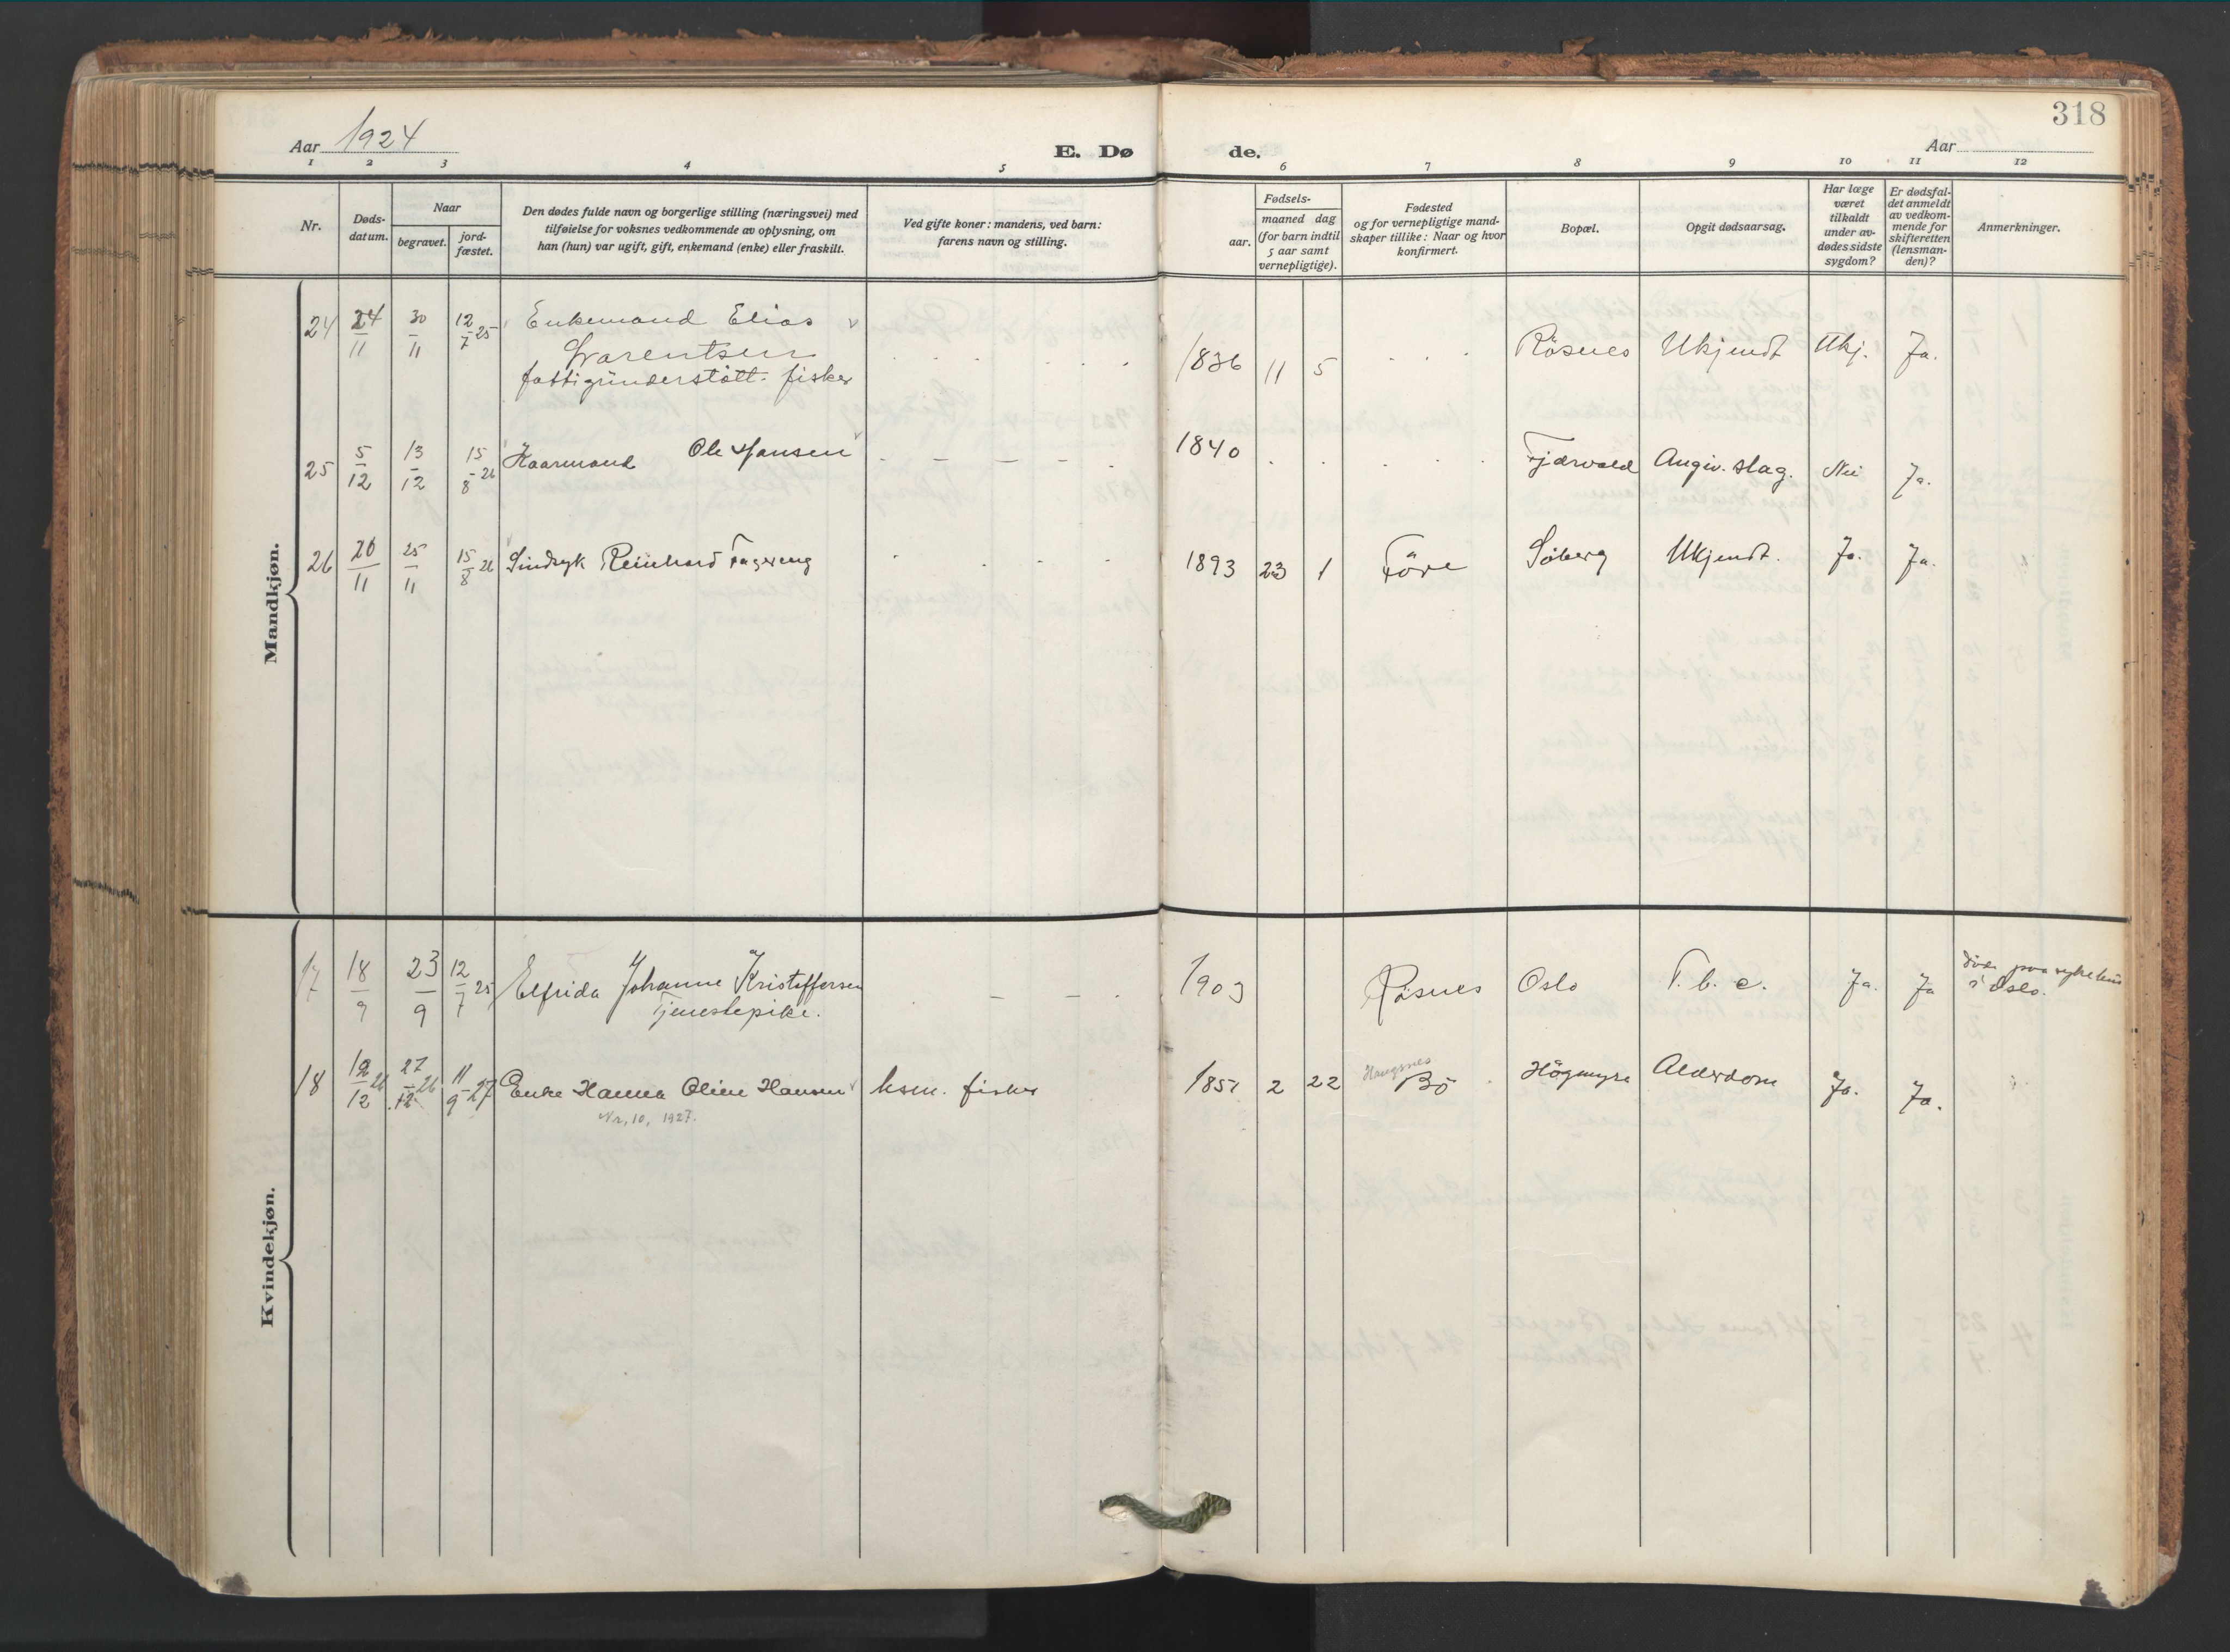 318
Aar 1924
E. Dø
de.
Aar
1 2 3 4 5 6 7 8 9 10 11 12
Nr.
Døds-
datum.
Naar
begravet.
jord-
fæstet.
Den dødes fulde navn og borgerlige stilling (næringsvei) med
tilføielse for voksnes vedkommende av oplysning, om
han (hun) var ugift, gift, enkemand (enke) eller fraskilt.
Ved gifte koner: mandens, ved barn:
farens navn og stilling.
Fødsels-
aar.
maaned dag
(for barn indtil
5 aar samt
vernepligtige).
Fødested
og for vernepligtige mand-
skaper tillike: Naar og hvor
konfirmert.
Bopæl.
Opgit dødsaarsag.
Har læge
været
tilkaldt
under av-
dødes sidste
sygdom?
Er dødsfal-
det anmeldt
av vedkom-
mende for
skifteretten
(lensman-
den)?
Anmerkninger.
Mandkjøn.
24 24/11 30/11 12/7 25 Enkemand Elias 1836 11 5 Røsnes Ukjendt Ukj. Ja.
fattigünderstøtt. fisker
25 5/12 13/12 15/8 26 Kaarmand Ole Hansen 1840 Fjærvold Angiv. slag. Nei Ja.
26 20/11 25/11 15/8 26 Sindsyk Reinhard Fagereng 1893 23 1 Føre Søberg Ukjendt. Ja. Ja.
Kvindekjøn.
17 18/9 23/9 12/7 25 Elfrida Johanne Kristoffersen 1903 Røsnes Oslo T.b.c. Ja. Ja døde paa sykehus
Tjenestepike. i Oslo.
18 12/12 26 27/12 26 11/9 27 Enke Hanna Oline Hansen ksm. fisker 1851 2 22 Haugsnes Bø Högmyra Alderdom Ja. Ja.
Nr. 10, 1927.